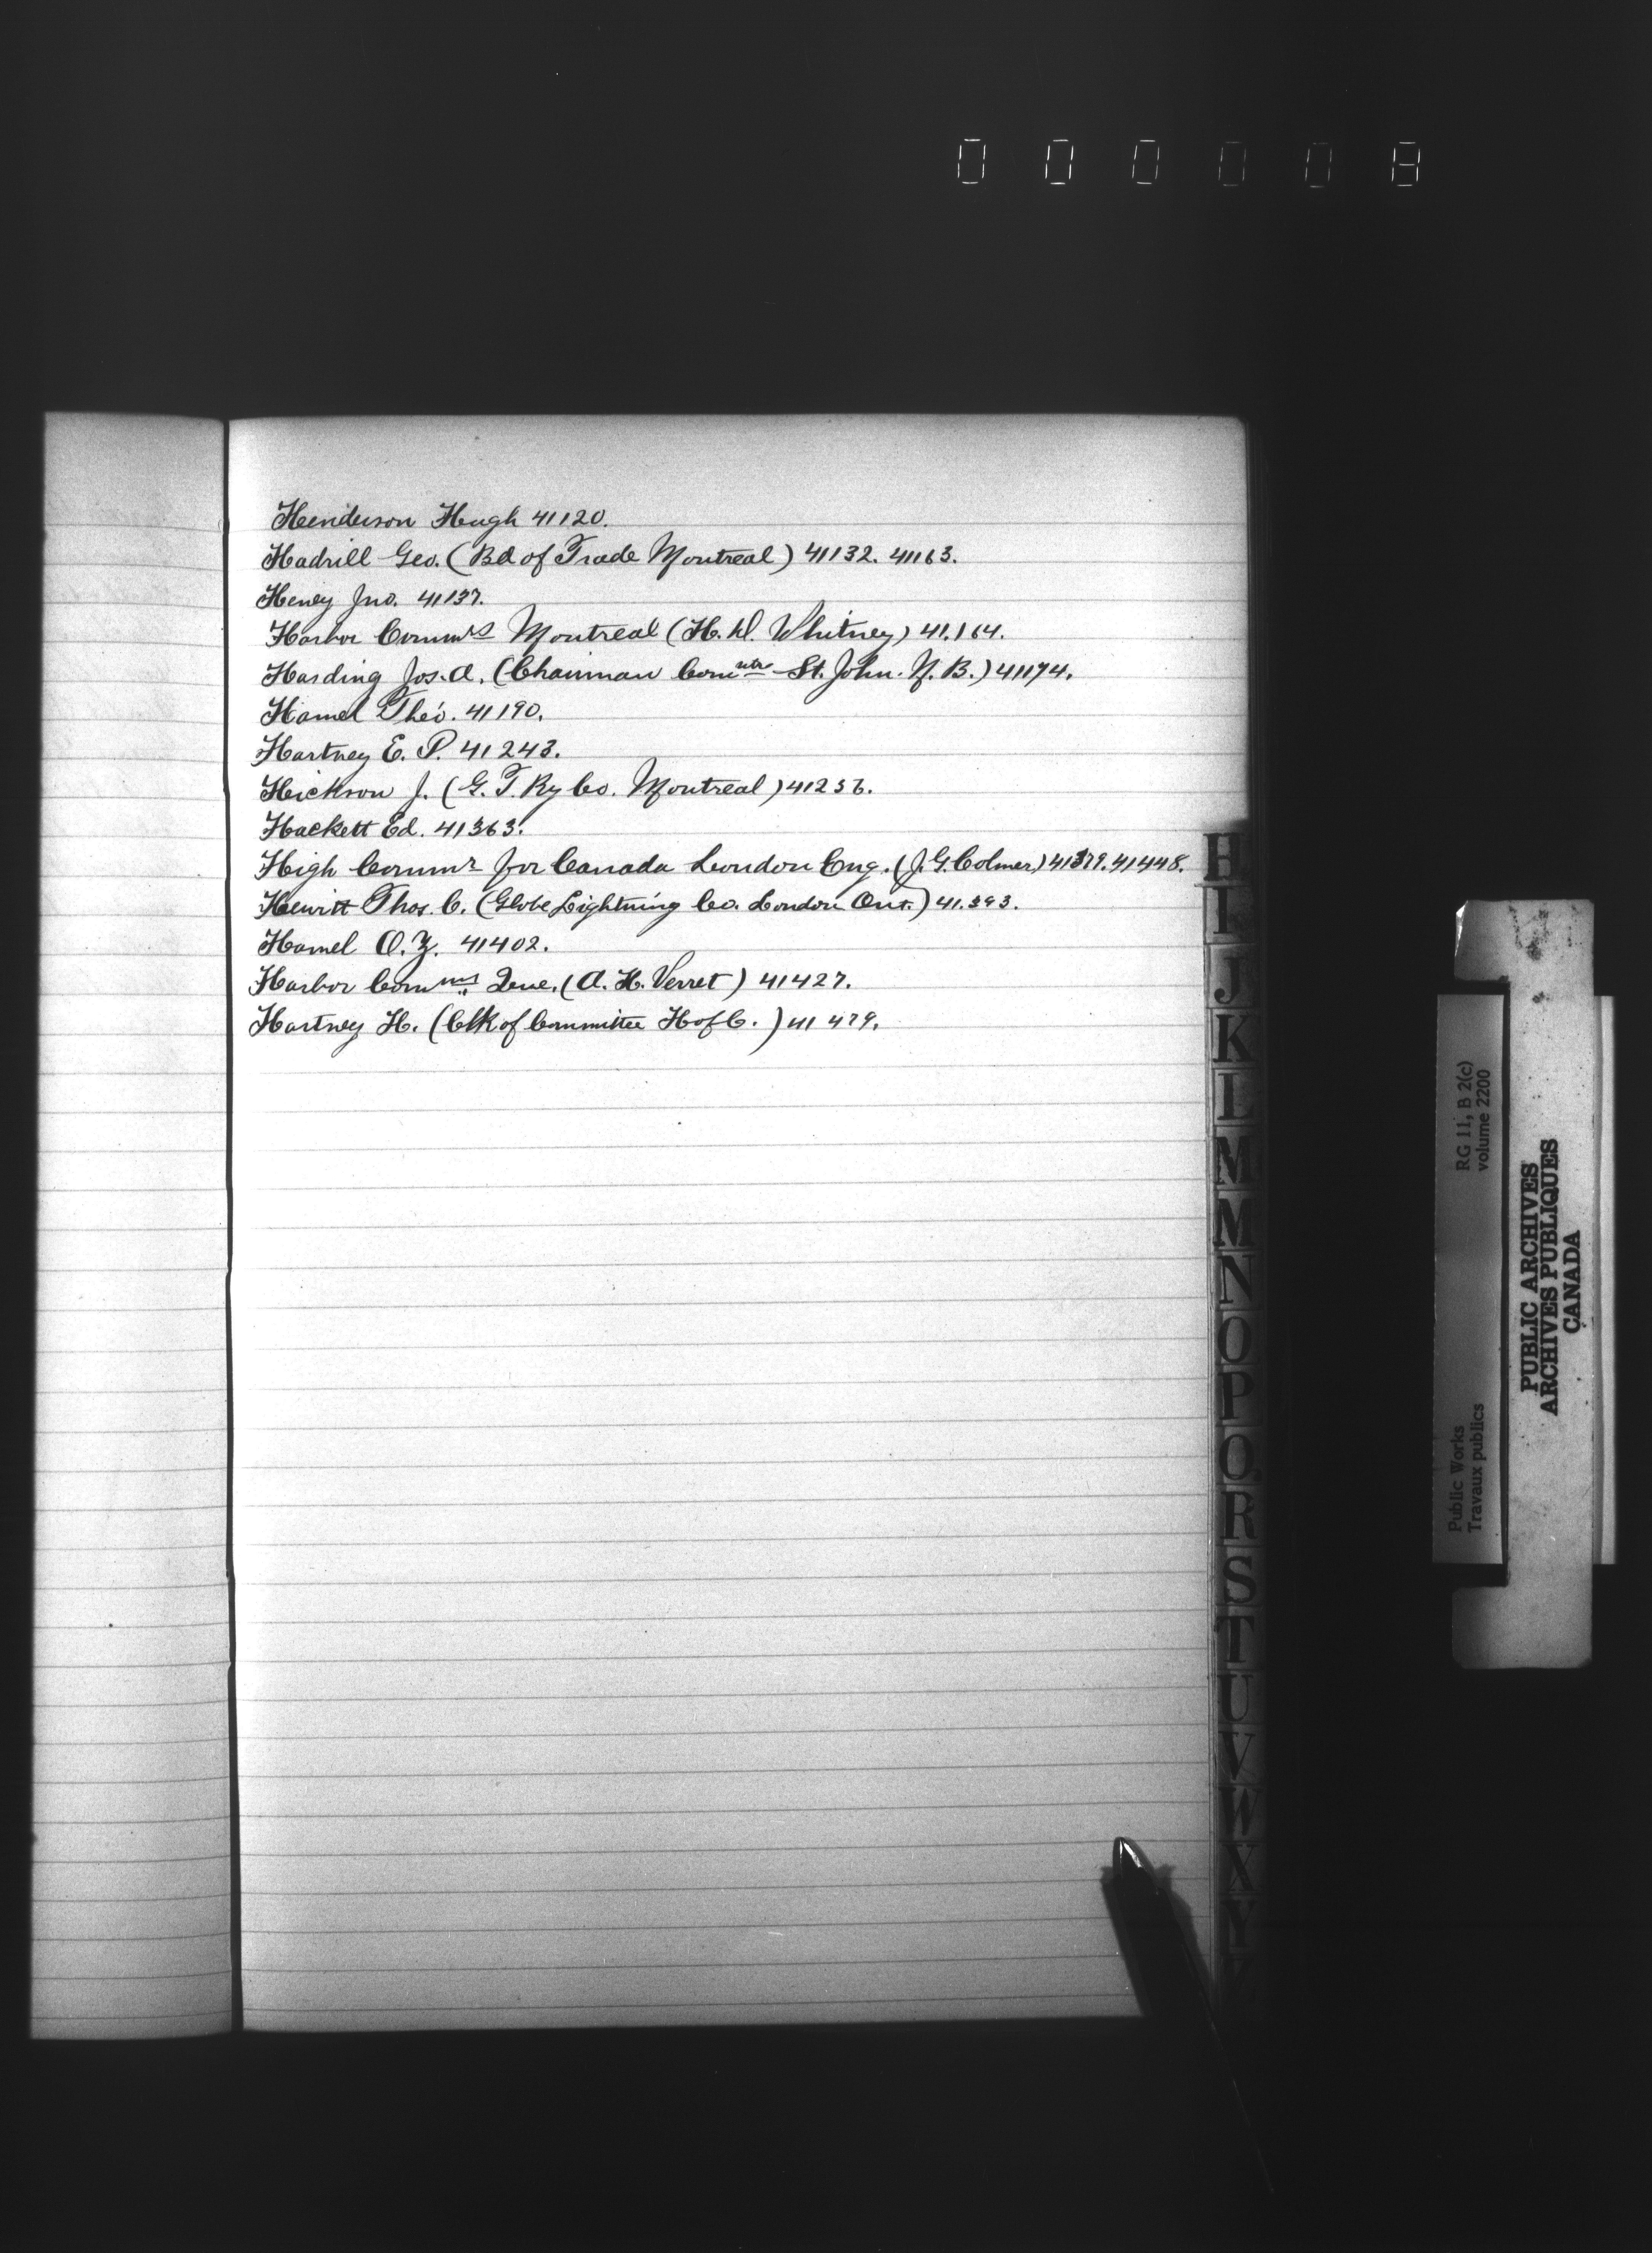 000008
Henderson Hugh 41120.
Hadrill Geo. (Bd of Trade Montreal) 41132. 41163.
Heney Jno. 41137.
Harbor Commrs Montreal (H. D. Whitney) 41.164.
Harding Jos. A. (Chairman St. John. N. B.) 41174.
Hamel Théo. 41190.
Hartney E. P. 41243.
Hickson J. (G. T. Ry Co. Montreal) 41256.
Hackett Ed. 41363.
High Commr for Canada London Eng. (J. G. Colmer) 41379. 41448.
Hewitt Thos. C. (Globe Lightning Co. London Ont.) 41.393.
Hamel O. Z. 41402.
Harbor Comms Que. (A. H. Verret) 41427.
Hartney H. (Clk of Committee H of C.) 41479.
H
I
J
K
L
M
M
N
O
P
Q
R
S
T
U
V
W
X
Y
RG 11, B 2(c)
volume 2200
Public Works
Travaux publics
PUBLIC ARCHIVES
ARCHIVES PUBLIQUES
CANADA